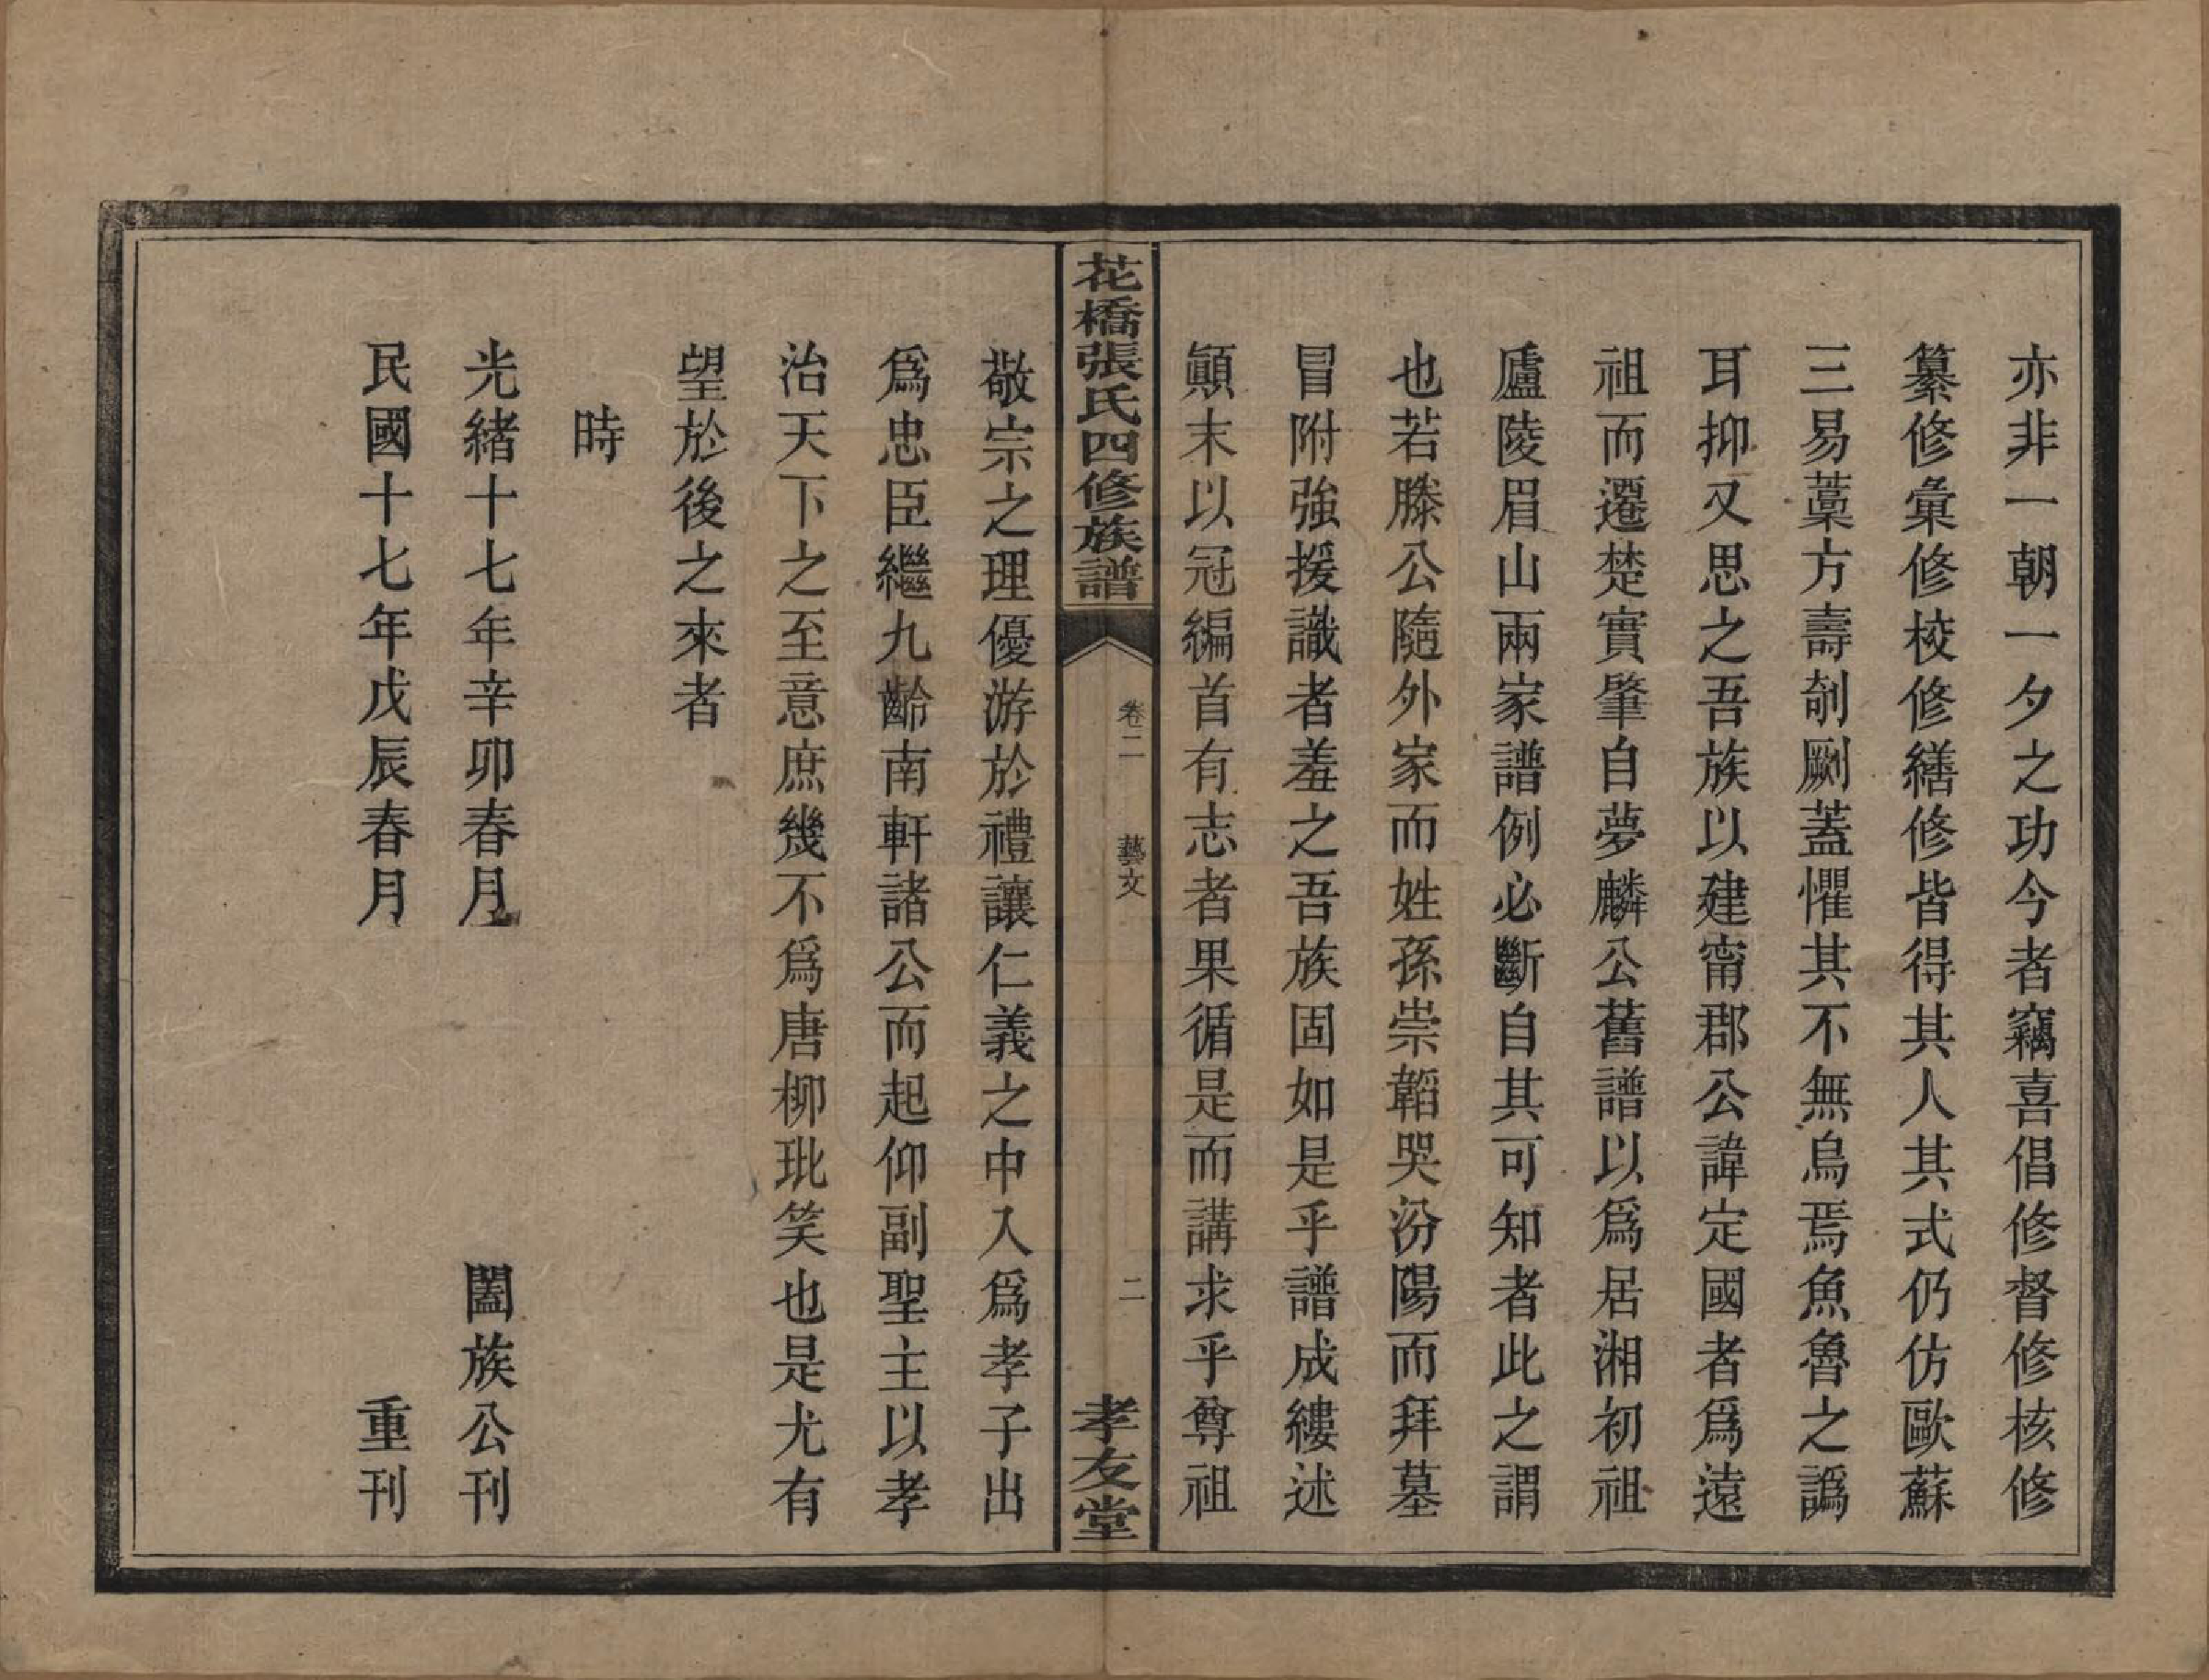 亦非一朝一夕之功今者竊喜倡修督修核修
纂修彙修校修繕修皆得其人其式仍仿歐蘇
三易藁方壽剞劂蓋懼其不無烏焉魚魯之譌
耳抑又思之吾族以建甯郡公諱定國者爲遠
祖而遷楚實肇自夢麟公舊譜以爲居湘初祖
廬陵眉山兩家譜例必斷自其可知者此之謂
也若滕公隨外家而姓孫崇韜哭汾陽而拜墓
冒附強援識者羞之吾族固如是乎譜成縷述
顚末以冠編首有志者果循是而講求乎尊祖
花橋張氏四修族譜
卷二
藝文
二
孝友堂
敬宗之理優游於禮讓仁義之中入爲孝子出
爲忠臣繼九齡南軒諸公而起仰副聖主以孝
治天下之至意庶幾不爲唐柳玭笑也是尤有
望於後之來者
時
光緒十七年辛卯春月 闔族公刊
民國十七年戊辰春月 重刊